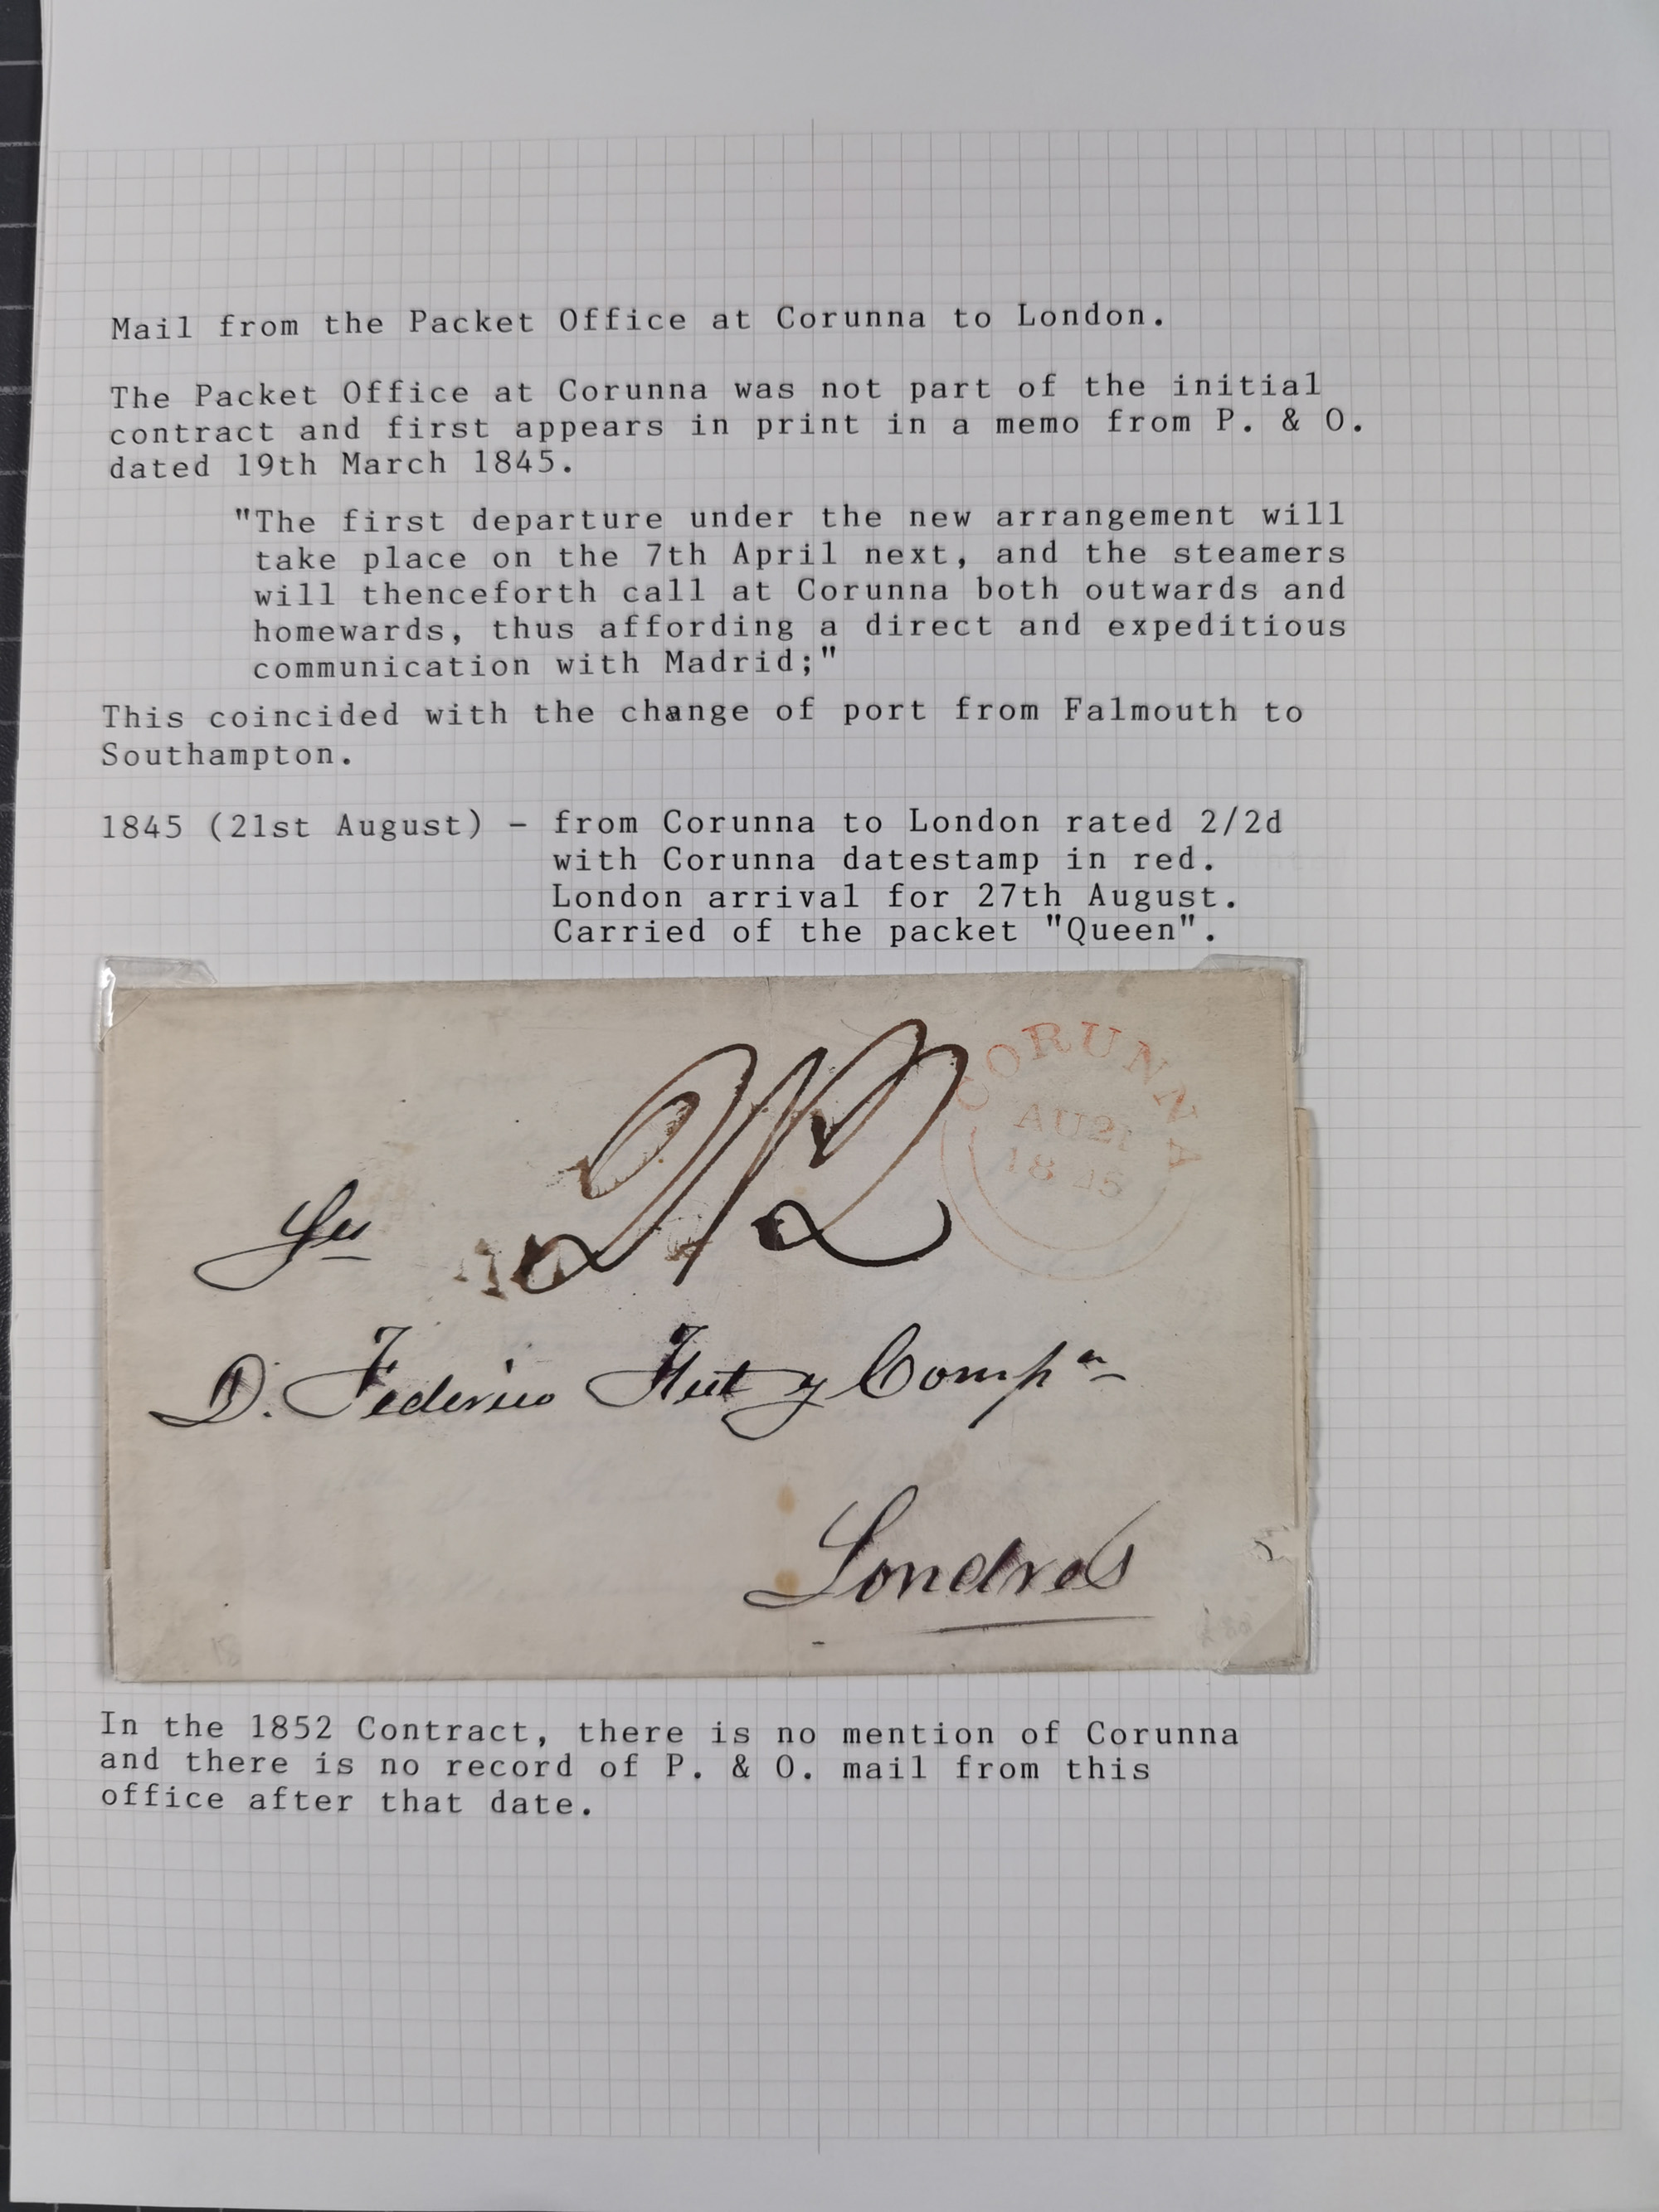 Mail from the Packet Office at Corunna to London.
The Packet Office at Corunna was not part of the initial
contract and first appears in print in a memo from P. & O.
dated 19th March 1845.
"The first departure under the new arrangement will
take place on the 7th April next, and the steamers
will thenceforth call at Corunna both outwards and
homewards, thus affording a direct and expeditious
communication with Madrid;"
This coincided with the change of port from Falmouth to
Southampton.
1845 (21st August) - from Corunna to London rated 2/2d
with Corunna datestamp in red.
London arrival for 27th August.
Carried of the packet "Queen".
2/2
CORUNNA
AU21
1845
D. Federico Hut y Compª
Londres
In the 1852 Contract, there is no mention of Corunna
and there is no record of P. & O. mail from this
office after that date.